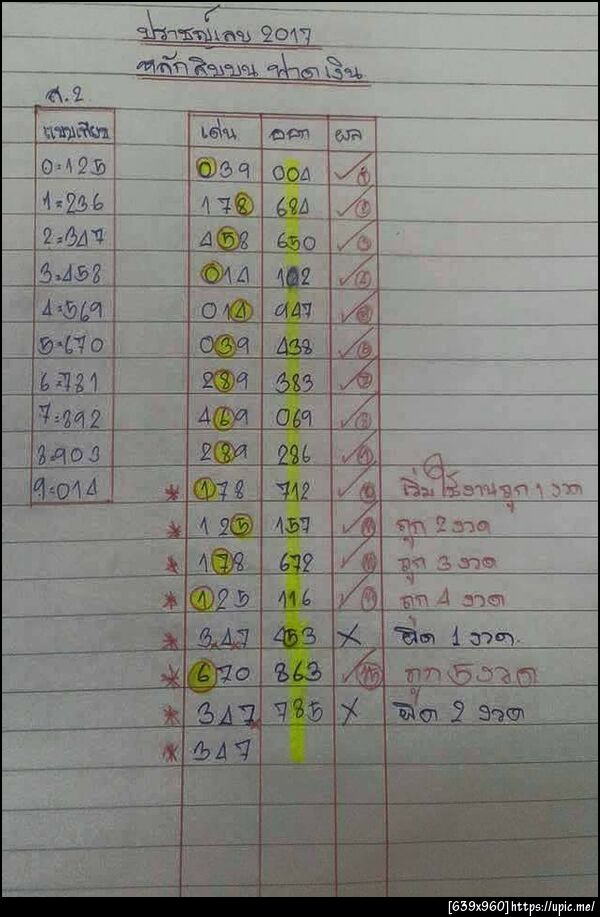 ปราชญ์เลข 2017
หลักสิบบน ฟาดเงิน
ส.2
เด่น ออก ผล
0=125 039 004 ✓
1=236 178 684 ✓
2=347 458 650 ✓
3=458 014 102 ✓
4=569 014 947 ✓
5=670 039 438 ✓
6=781 289 383 ✓
7=892 469 069 ✓
8=903 289 286 ✓
9=014 * 178 712 ✓ เริ่มใช้งานถูก 1 งวด
* 125 157 ✓ ถูก 2 งวด
* 178 672 ✓ ถูก 3 งวด
* 125 116 ✓ ถูก 4 งวด
* 347 453 X ผิด 1 งวด
* 670 863 ✓ 15 ถูก 5 งวด
* 347 785 X ผิด 2 งวด
* 347
[639x960]https://upic.me/